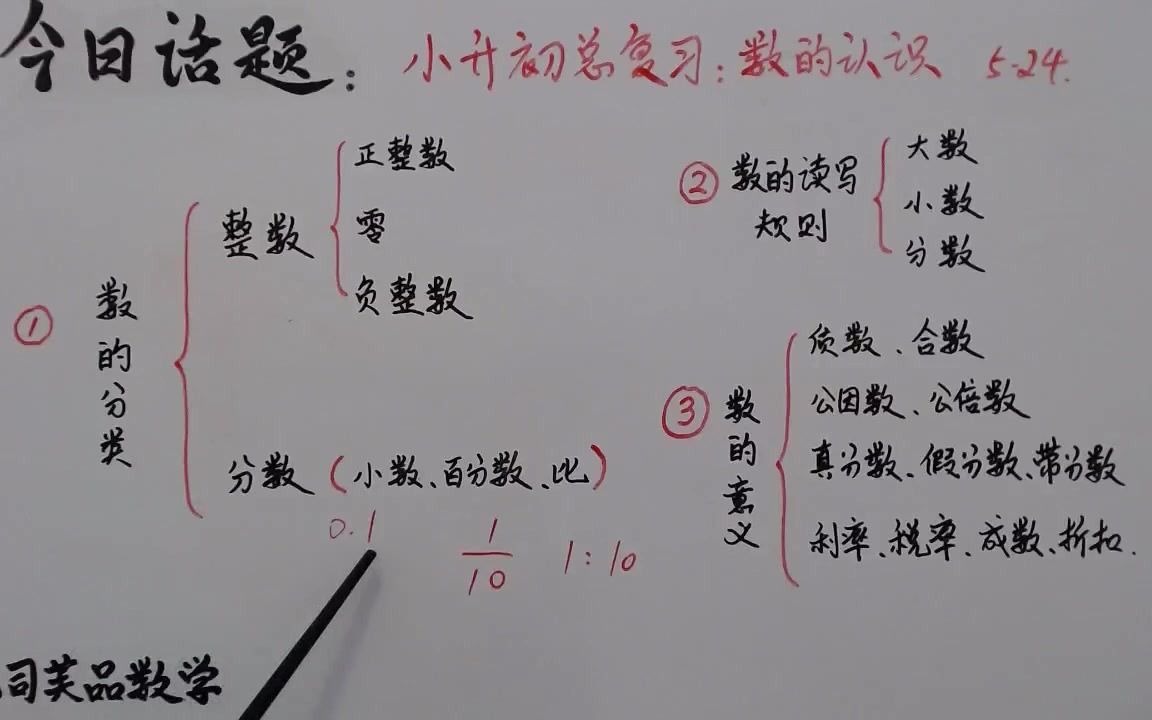 今日话题：小升初总复习：数的认识 5·24.
① 数的分类
整数
正整数
零
负整数
分数（小数、百分数、比）
0.1 1/10 1:10
② 数的读写
规则
大数
小数
分数
③ 数的意义
质数、合数
公因数、公倍数
真分数、假分数、带分数
利率、税率、成数、折扣.
司芙品数学